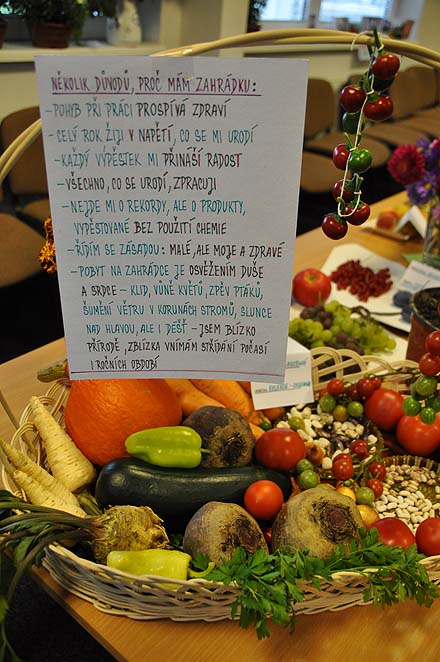 NĚKOLIK DŮVODŮ, PROČ MÁM ZAHRÁDKU:
- POHYB PŘI PRÁCI PROSPÍVÁ ZDRAVÍ
- CELÝ ROK ŽIJI V NAPĚTÍ, CO SE MI URODÍ
- KAŽDÝ VÝPĚSTEK MI PŘINÁŠÍ RADOST
- VŠECHNO, CO SE URODÍ, ZPRACUJI
- NEJDE MI O REKORDY, ALE O PRODUKTY,
VYPĚSTOVANÉ BEZ POUŽITÍ CHEMIE
- ŘÍDÍM SE ZÁSADOU: MALÉ, ALE MOJE A ZDRAVÉ
- POBYT NA ZAHRÁDCE JE OSVĚŽENÍM DUŠE
A SRDCE - KLID, VŮNĚ KVĚTŮ, ZPĚV PTÁKŮ,
ŠUMĚNÍ VĚTRU V KORUNÁCH STROMŮ, SLUNCE
NAD HLAVOU, ALE I DÉŠŤ - JSEM BLÍZKO
PŘÍRODĚ, ZBLÍZKA VNÍMÁM STŘÍDÁNÍ POČASÍ
I ROČNÍCH OBDOBÍ